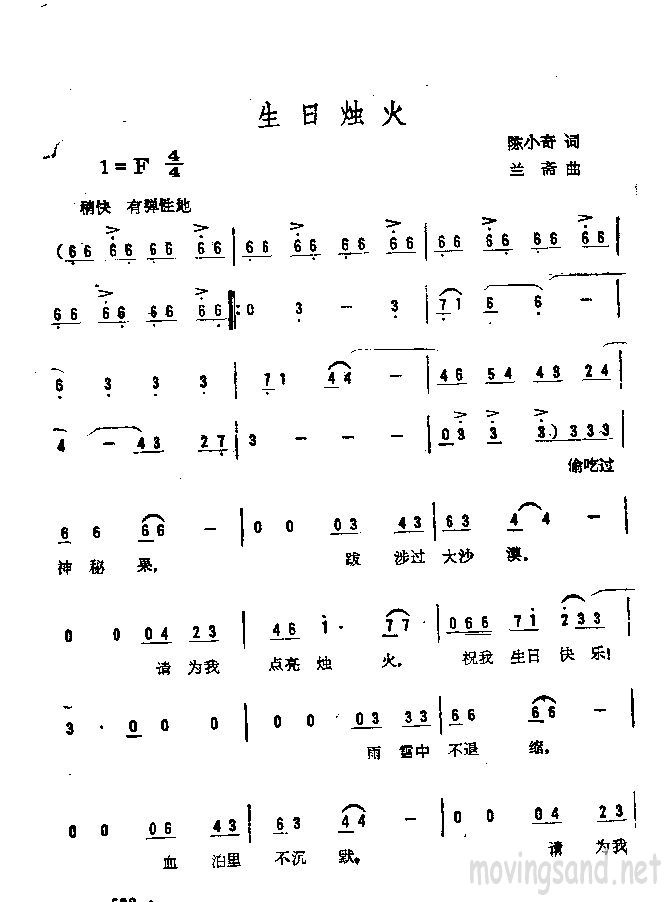 生日烛火
1=F 4/4
陈小奇 词
兰斋 曲
稍快 有弹性地
(66 66 66 66 | 66 66 66 66 | 66 66 66 66 |
66 66 66 66 |: 0 3 - 3 | 71 6 6 - |
6 3 3 3 | 71 44 - | 46 54 43 24 |
4 - 43 27 | 3 - - - | 03 3 3) 333 |
偷吃过
6 6 66 - | 0 0 03 43 | 63 44 - |
神秘果, 跋涉过大沙漠,
0 0 04 23 | 46 i· 77 | 066 71 233 |
请为我 点亮烛火, 祝我生日快乐!
3· 0 0 0 | 0 0 03 33 | 66 66 - |
雨雪中不退缩,
0 0 06 43 | 63 44 - | 0 0 04 23 |
血泊里不沉默, 请为我
movingsand.net